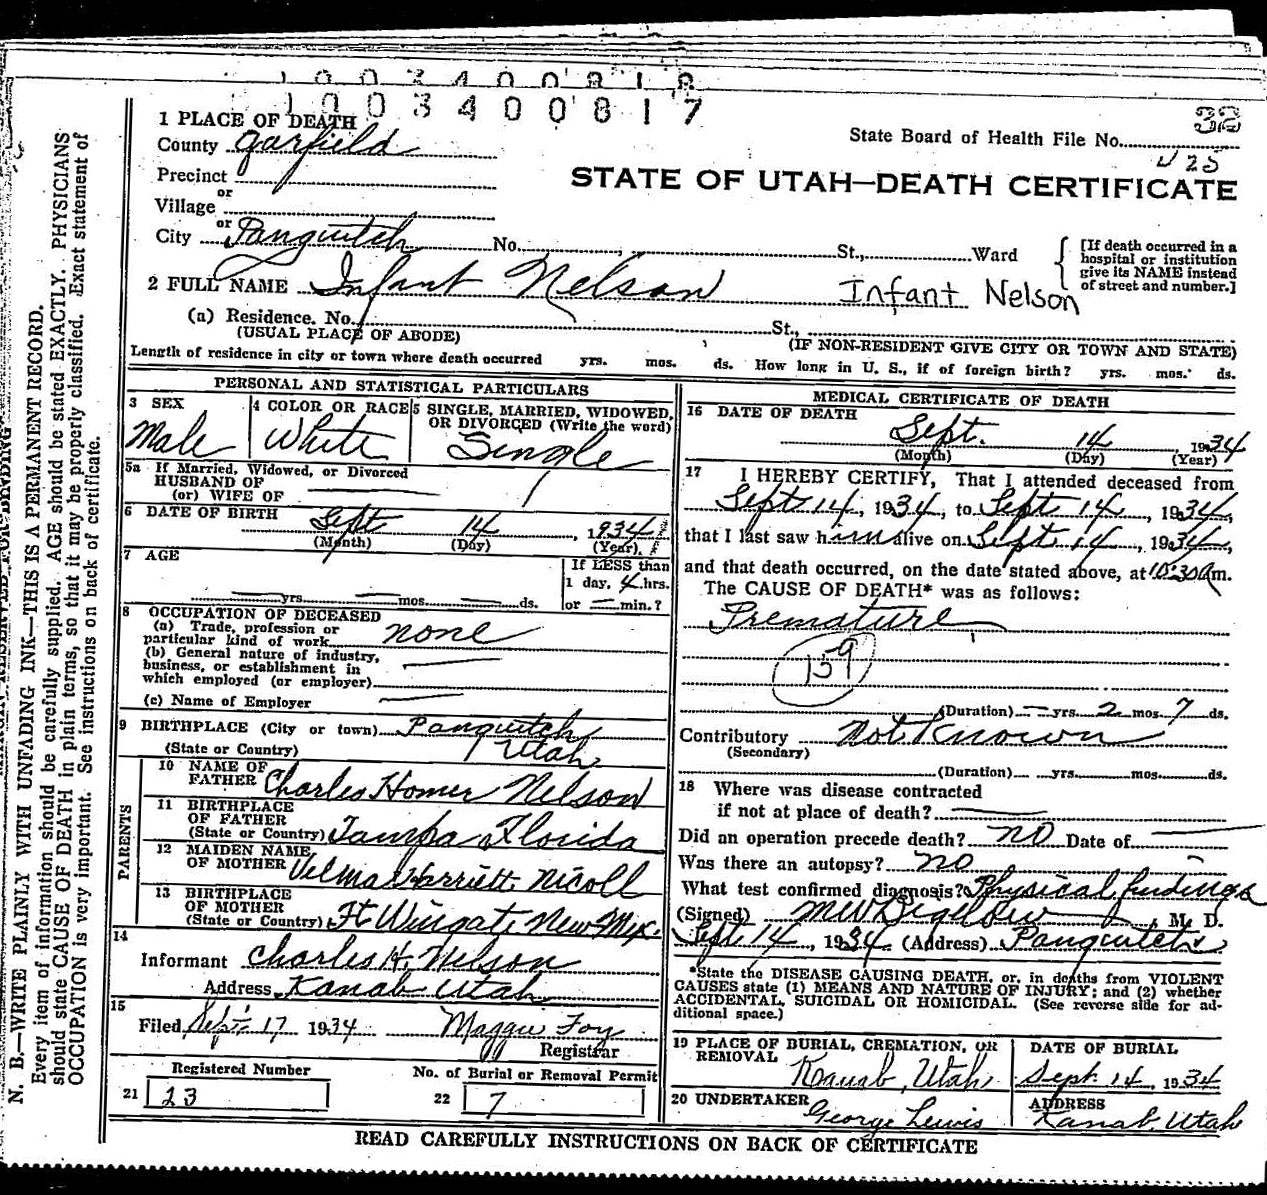 1003400818
1003400817
32
1 PLACE OF DEATH
State Board of Health File No.
County Garfield
J 25
Precinct
STATE OF UTAH—DEATH CERTIFICATE
or
Village
or
City Panguitch No. , St., Ward
[If death occurred in a hospital or institution give its NAME instead of street and number.]
2 FULL NAME Infant Nelson Infant Nelson
(a) Residence. No. St.,
(USUAL PLACE OF ABODE) (IF NON-RESIDENT GIVE CITY OR TOWN AND STATE)
Length of residence in city or town where death occurred yrs. mos. ds. How long in U. S., if of foreign birth? yrs. mos. ds.
PERSONAL AND STATISTICAL PARTICULARS
3 SEX
Male
4 COLOR OR RACE
White
5 SINGLE, MARRIED, WIDOWED,
OR DIVORCED (Write the word)
Single
5a If Married, Widowed, or Divorced
HUSBAND OF
(or) WIFE OF
6 DATE OF BIRTH Sept 14, 1934
(Month) (Day) (Year)
7 AGE
yrs. mos. ds.
If LESS than
1 day, 4 hrs.
or — min.?
8 OCCUPATION OF DECEASED
(a) Trade, profession or
particular kind of work none
(b) General nature of industry,
business, or establishment in
which employed (or employer)
(c) Name of Employer
9 BIRTHPLACE (City or town) Panguitch
(State or Country) Utah
PARENTS
10 NAME OF
FATHER Charles Homer Nelson
11 BIRTHPLACE
OF FATHER
(State or Country) Tampa Florida
12 MAIDEN NAME
OF MOTHER Velma Harriett Nicoll
13 BIRTHPLACE
OF MOTHER
(State or Country) Ft Wingate New Mex.
14
Informant Charles H. Nelson
Address Kanab Utah
15
Filed Sept 17 1934 Maggie Foy
Registrar
Registered Number
21 23
No. of Burial or Removal Permit
22 7
MEDICAL CERTIFICATE OF DEATH
16 DATE OF DEATH
Sept. 14 1934
(Month) (Day) (Year)
17 I HEREBY CERTIFY, That I attended deceased from
Sept 14, 1934, to Sept 14, 1934,
that I last saw him alive on Sept 14, 1934,
and that death occurred, on the date stated above, at 10:30 A m.
The CAUSE OF DEATH* was as follows:
Premature
159
(Duration) — yrs. 2 mos. 7 ds.
Contributory Not Known
(Secondary)
(Duration) yrs. mos. ds.
18 Where was disease contracted
if not at place of death?
Did an operation precede death? no Date of
Was there an autopsy? no
What test confirmed diagnosis? Physical findings
(Signed) M W Bigelow, M. D.
Sept 14, 1934 (Address) Panguitch
*State the DISEASE CAUSING DEATH, or, in deaths from VIOLENT
CAUSES state (1) MEANS AND NATURE OF INJURY; and (2) whether
ACCIDENTAL, SUICIDAL OR HOMICIDAL. (See reverse side for ad-
ditional space.)
19 PLACE OF BURIAL, CREMATION, OR
REMOVAL
Kanab, Utah
DATE OF BURIAL
Sept. 14, 1934
20 UNDERTAKER
George Lewis
ADDRESS
Kanab, Utah
READ CAREFULLY INSTRUCTIONS ON BACK OF CERTIFICATE
N. B.—WRITE PLAINLY WITH UNFADING INK—THIS IS A PERMANENT RECORD.
Every item of information should be carefully supplied. AGE should be stated EXACTLY. PHYSICIANS
should state CAUSE OF DEATH in plain terms, so that it may be properly classified. Exact statement of
OCCUPATION is very important. See instructions on back of certificate.